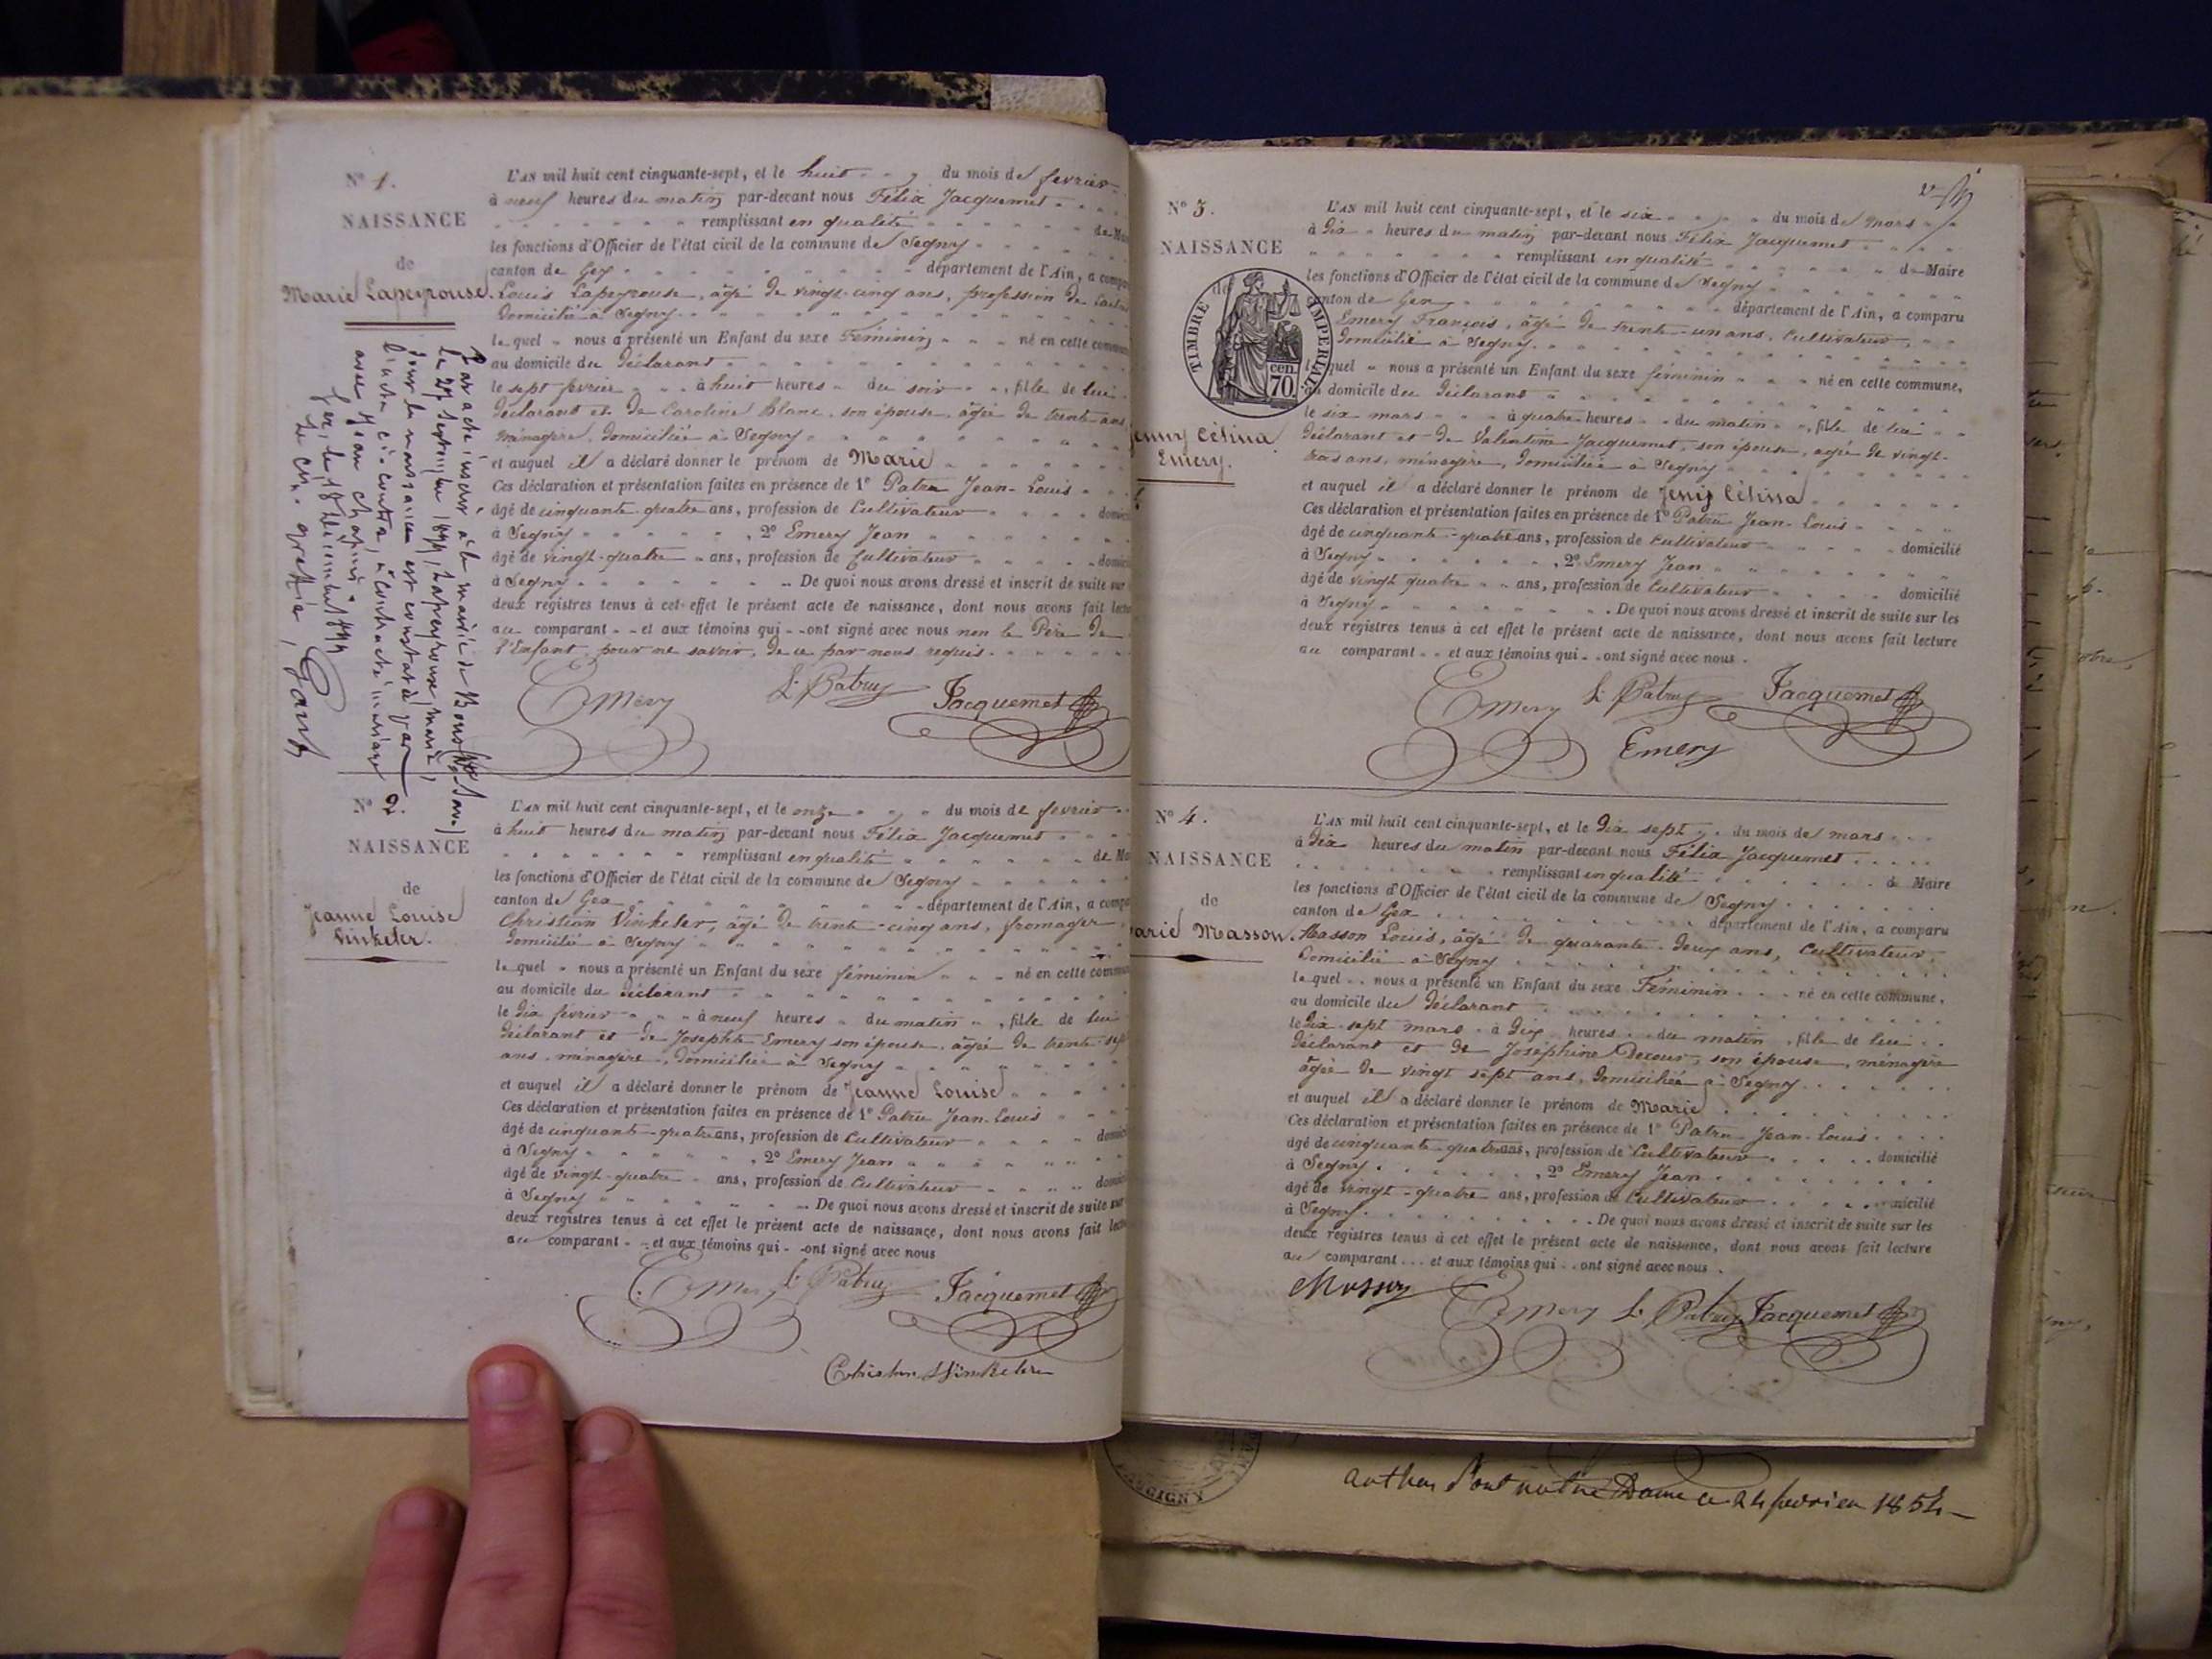 N° 1.
NAISSANCE
de
Marie Lapeyrouse.
L'AN mil huit cent cinquante-sept, et le huit du mois de fevrier
à neuf heures du matin par-devant nous Félix Jacquemet
remplissant en qualité de Ma
les fonctions d'Officier de l'état civil de la commune de Segny
canton de Gex département de l'Ain, a compa
Louis Lapeyrouse, âgé de vingt-cinq ans, profession de
Domicilié à Segny
lequel nous a présenté un Enfant du sexe Féminin né en cette commun
au domicile du déclarant
le sept fevrier à huit heures du soir, fille de lui
déclarant et de Caroline Blanc, son épouse, âgée de trente ans
ménagère, domiciliée à Segny
et auquel il a déclaré donner le prénom de Marie
Ces déclaration et présentation faites en présence de 1° Patru Jean-Louis
âgé de cinquante-quatre ans, profession de Cultivateur domici
à Segny, 2° Emery Jean
âgé de vingt-quatre ans, profession de Cultivateur domici
à Segny De quoi nous avons dressé et inscrit de suite sur
deux registres tenus à cet effet le présent acte de naissance, dont nous avons fait lectu
au comparant et aux témoins qui ont signé avec nous non le Père de
l'Enfant, pour ne savoir, de ce par nous requis.
Emery L. Patru Jacquemet
Par acte inscrit à la mairie de Bons (Hte Savoie)
le 27 septembre 1877, Lapeyrouse, Marie,
dont la naissance est constatée par
l'acte ci-contre, a contracté mariage
avec Jean
Gex, le 18 Décembre 1877
Le greffier,
N° 2.
NAISSANCE
de
Jeanne Louise
Vinkeler.
L'AN mil huit cent cinquante-sept, et le onze du mois de fevrier
à huit heures du matin par-devant nous Félix Jacquemet
remplissant en qualité de Ma
les fonctions d'Officier de l'état civil de la commune de Segny
canton de Gex département de l'Ain, a compa
Christian Vinkeler, âgé de trente-cinq ans, fromager
Domicilié à Segny
lequel nous a présenté un Enfant du sexe féminin né en cette commun
au domicile du déclarant
le dix fevrier à neuf heures du matin, fille de lui
déclarant et de Josephte Emery son épouse, âgée de trente-sept
ans, ménagère, domiciliée à Segny
et auquel il a déclaré donner le prénom de Jeanne Louise
Ces déclaration et présentation faites en présence de 1° Patru Jean-Louis
âgé de cinquante-quatre ans, profession de Cultivateur domici
à Segny, 2° Emery Jean
âgé de vingt-quatre ans, profession de Cultivateur domici
à Segny De quoi nous avons dressé et inscrit de suite sur
deux registres tenus à cet effet le présent acte de naissance, dont nous avons fait lectu
au comparant et aux témoins qui ont signé avec nous
Emery L. Patru Jacquemet
Christian Winkeler
N° 3.
NAISSANCE
de
TIMBRE IMPERIAL
70 cen.
enny Célina
Emery.
L'AN mil huit cent cinquante-sept, et le six du mois de mars
à dix heures du matin par-devant nous Félix Jacquemet
remplissant en qualité de Maire
les fonctions d'Officier de l'état civil de la commune de Segny
canton de Gex département de l'Ain, a comparu
Emery François, âgé de trente-un ans, Cultivateur,
Domicilié à Segny.
lequel nous a présenté un Enfant du sexe féminin né en cette commune,
au domicile du déclarant
le six mars à quatre heures du matin, fille de lui
déclarant et de Valentine Jacquemet, son épouse, agée de vingt-
trois ans, ménagère, domiciliée à Segny
et auquel il a déclaré donner le prénom de Jenny Célina
Ces déclaration et présentation faites en présence de 1° Patru Jean-Louis
âgé de cinquante-quatre ans, profession de Cultivateur domicilié
à Segny, 2° Emery Jean
âgé de vingt quatre ans, profession de Cultivateur domicilié
à Segny. De quoi nous avons dressé et inscrit de suite sur les
deux registres tenus à cet effet le présent acte de naissance, dont nous avons fait lecture
au comparant et aux témoins qui ont signé avec nous.
Emery L. Patru Jacquemet
Emery
N° 4.
NAISSANCE
de
arie Masson.
L'AN mil huit cent cinquante-sept, et le dix sept du mois de mars
à dix heures du matin par-devant nous Félix Jacquemet
remplissant en qualité de Maire
les fonctions d'Officier de l'état civil de la commune de Segny
canton de Gex département de l'Ain, a comparu
Masson Louis, âgé de quarante-deux ans, Cultivateur,
Domicilié à Segny
lequel nous a présenté un Enfant du sexe Féminin né en cette commune,
au domicile du déclarant
le dix-sept mars à dix heures du matin, fille de lui
déclarant et de Joséphine Decour, son épouse, ménagère
âgée de vingt sept ans, domiciliée à Segny
et auquel il a déclaré donner le prénom de Marie
Ces déclaration et présentation faites en présence de 1° Patru Jean-Louis
âgé de cinquante-quatre ans, profession de Cultivateur domicilié
à Segny, 2° Emery Jean
âgé de vingt-quatre ans, profession de Cultivateur micilié
à Segny. De quoi nous avons dressé et inscrit de suite sur les
deux registres tenus à cet effet le présent acte de naissance, dont nous avons fait lecture
au comparant et aux témoins qui ont signé avec nous.
Masson Emery L. Patru Jacquemet
notre Dame ce 24 fevrier 1854